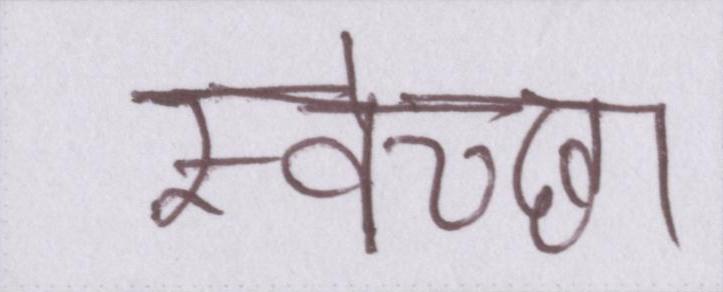 स्वेच्छा